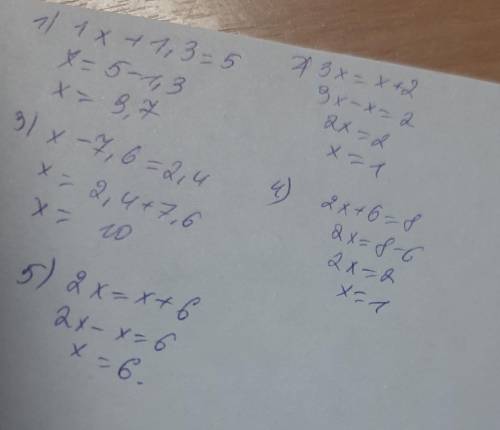 1) 1x+1,3=5
x=5-1,3
x=3,7
2) 3x=x+2
3x-x=2
2x=2
x=1
3) x-7,6=2,4
x=2,4+7,6
x=10
4) 2x+6=8
2x=8-6
2x=2
x=1
5) 2x=x+6
2x-x=6
x=6.